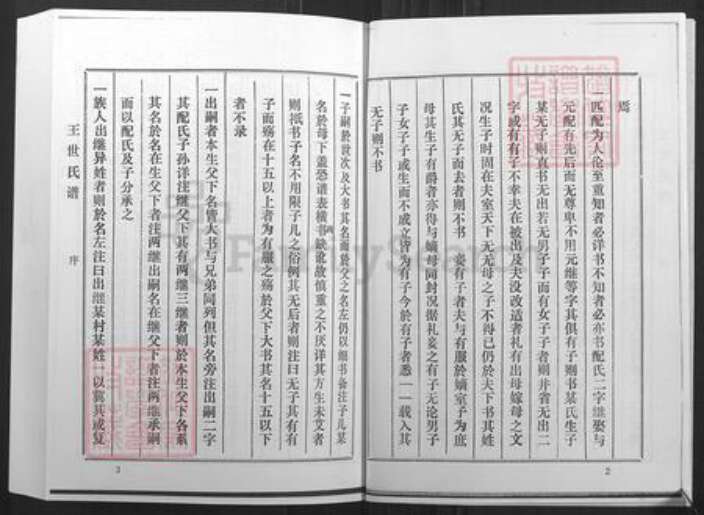 焉
一匹配为人伦至重知者必详书不知者必亦书配氏二字继娶与
元配有先后而无尊卑不用元继等字其俱有子则书某氏生子
某无子则直书无出若无男子子而有女子子者则并省无出二
字或有有子不幸夫在被出及夫没改适者礼有出母嫁母之文
况生子时固在夫室天下无无母之子不得已仍於夫下书其姓
氏其无子而去者则不书 妾有子者夫与有服於嫡室子为庶
母其生子有爵者亦得与嫡母同封况据礼妾之有子无论男子
子女子子或生而不成立皆为有子今於有子者悉一一载入其
无子则不书
2
一子嗣於世次及大书其名而於父之名左仍以细书备注子几某
名於母下盖恐谱表横书缺讹故慎重之不厌详其方生未艾者
则祇书子名不用限子几之俗例其无后者则注曰无子其有有
子而殇在十五以上者为有服之殇於父下大书其名十五以下
者不录
一出嗣者本生父下名皆大书与兄弟同列但其名旁注出嗣二字
其配氏子孙详注继父下其有两继三继者则於本生父下各系
其名於名在生父下者注两继出嗣名在继父下者注两继承嗣
而以配氏及子分承之
一族人出继异姓者则於名左注曰出继某村某姓一以冀其或复
王世氏谱
序
3